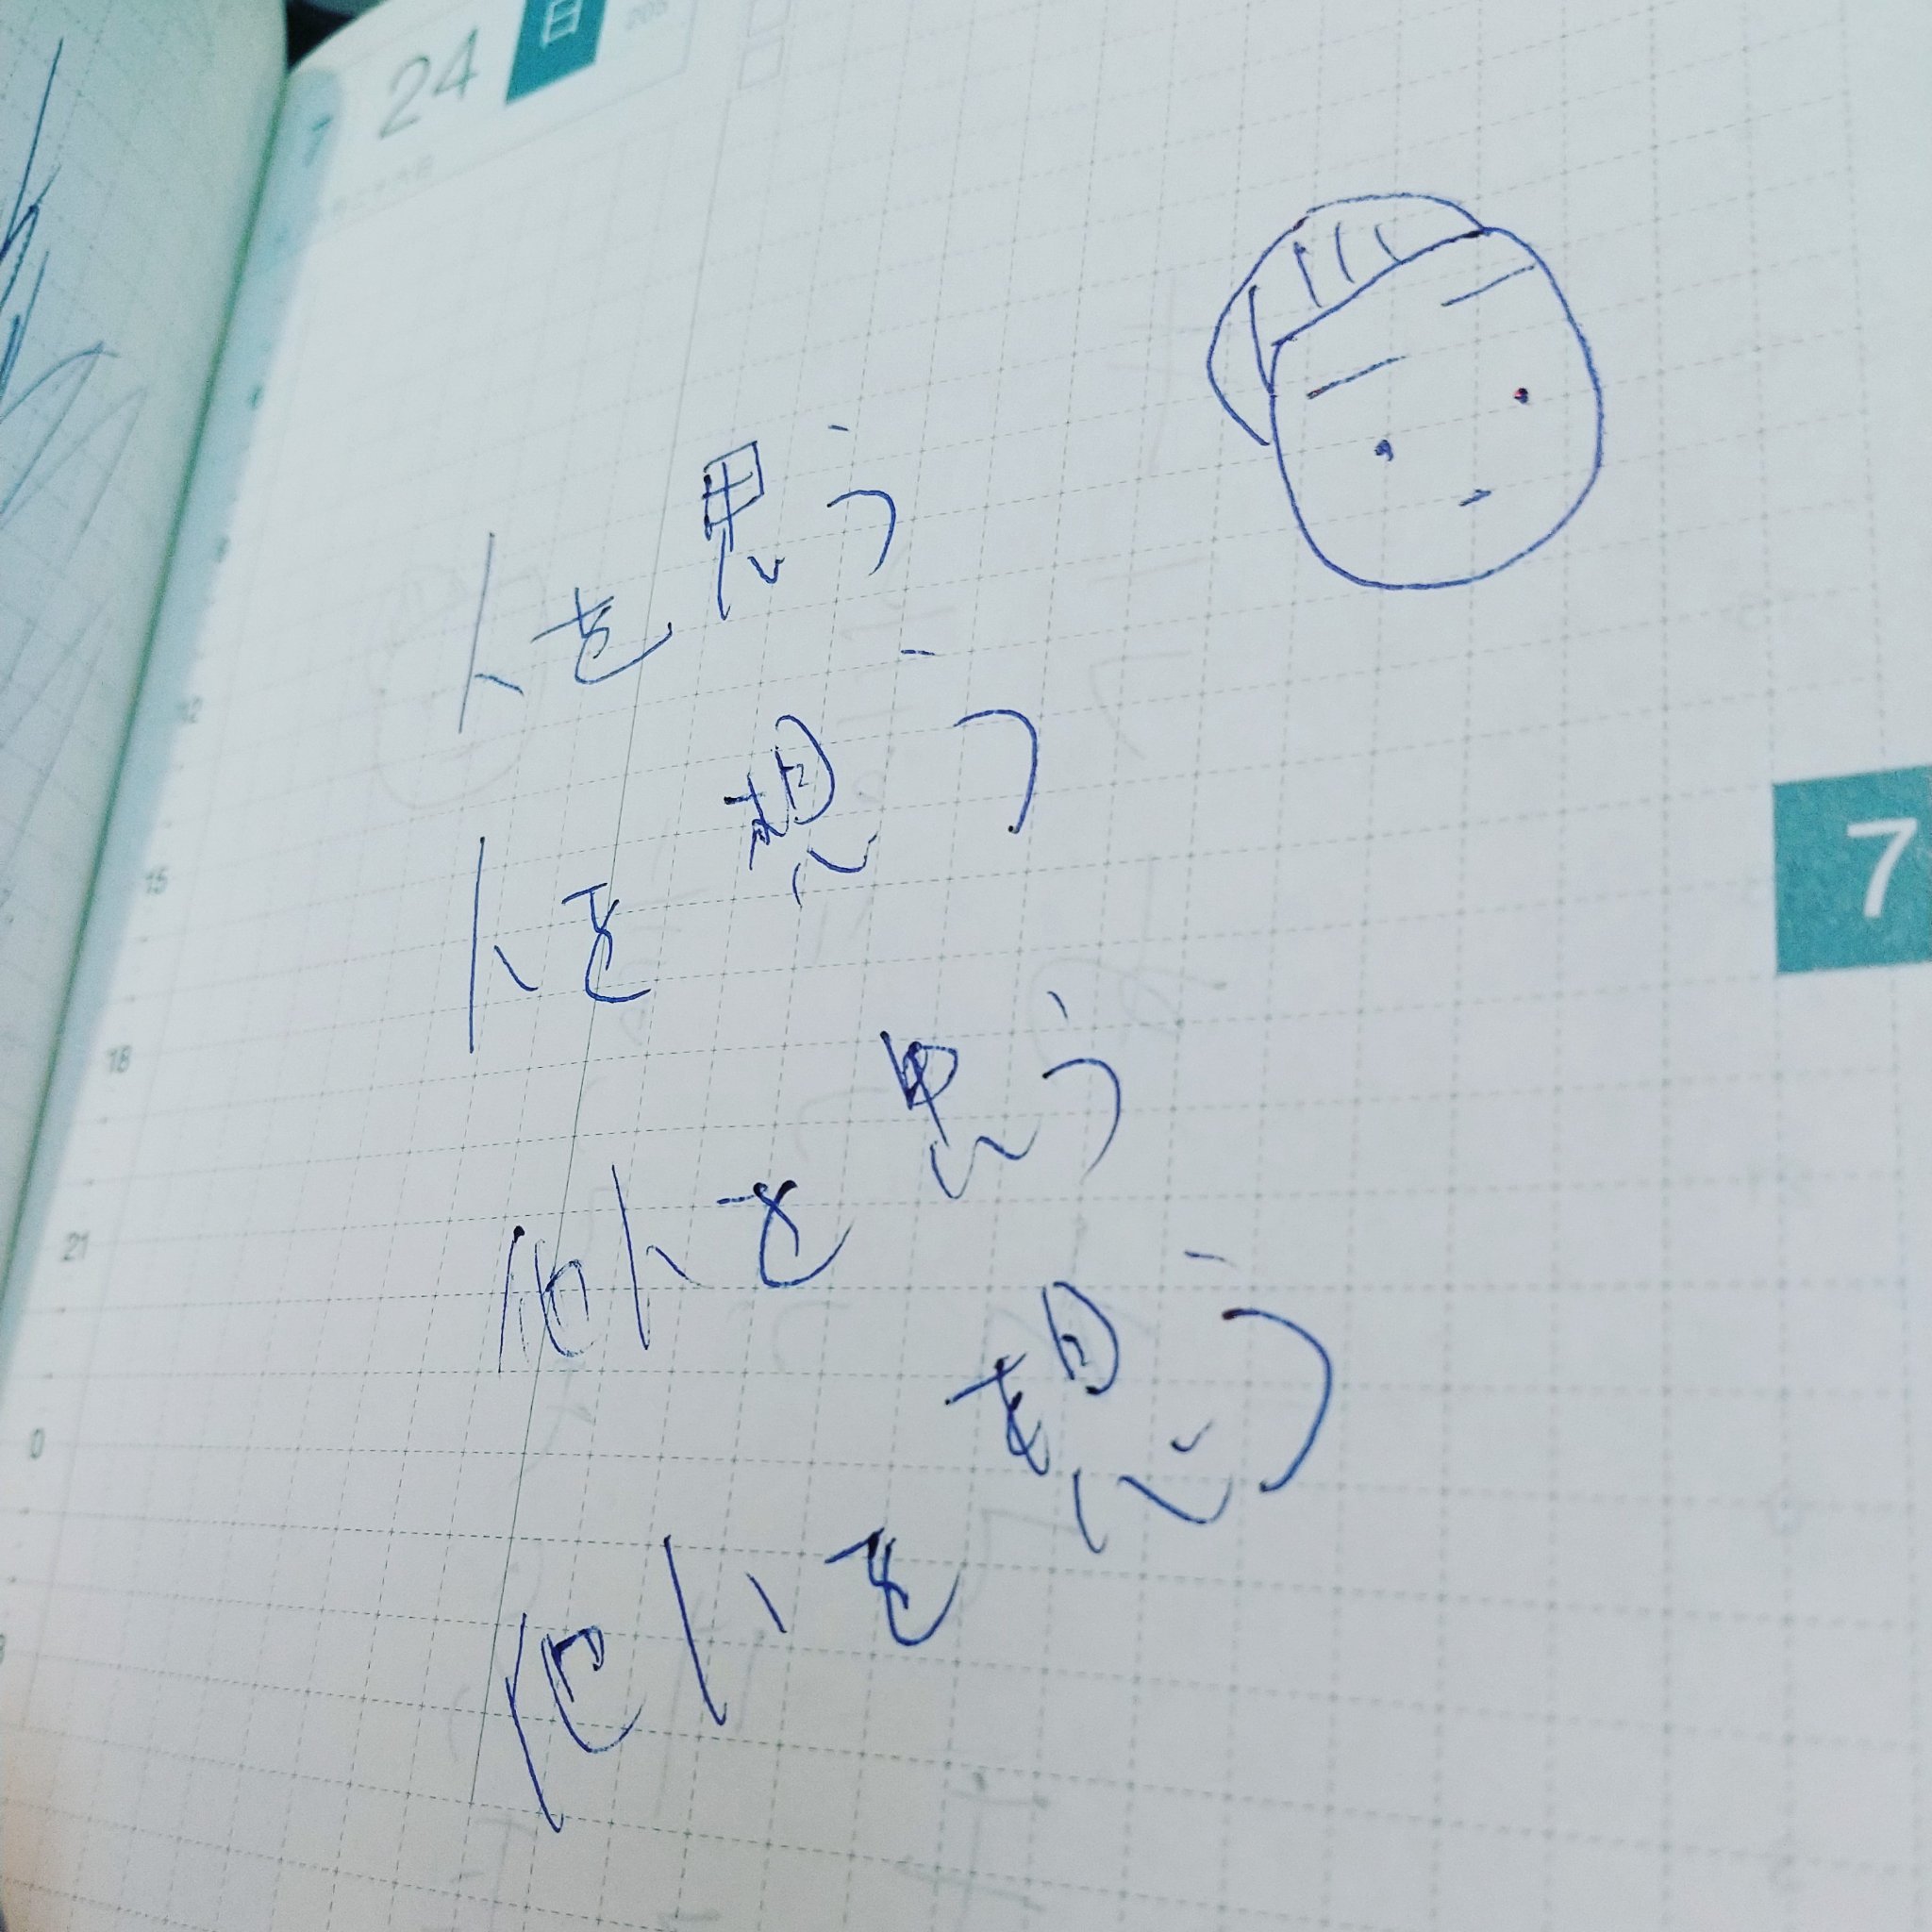 7 24 日 205
人を思う
人を想う
他人を思う
他人を想う
12
15
18
21
0
7